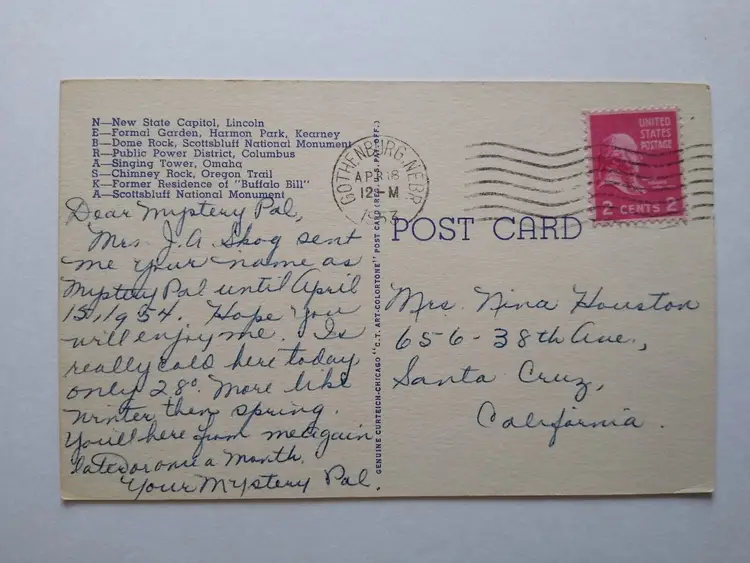 N—New State Capitol, Lincoln
E—Formal Garden, Harmon Park, Kearney
B—Dome Rock, Scottsbluff National Monument
R—Public Power District, Columbus
A—Singing Tower, Omaha
S—Chimney Rock, Oregon Trail
K—Former Residence of "Buffalo Bill"
A—Scottsbluff National Monument
Dear Mystery Pal,
Mrs. J.A. Skog sent
me your name as
Mystery Pal until April
15, 1954. Hope you
will enjoy me. Is
really cold here today,
only 28°. More like
winter then spring.
You'll here from me again
later once a month.
Your Mystery Pal.
GENUINE CURTEICH-CHICAGO "C.T. ART-COLORTONE" POST CARD (REG. U.S. PAT. OFF.)
GOTHENBURG, NEBR.
APR 16
12 - M
1953
UNITED
STATES
POSTAGE
2 CENTS 2
POST CARD
Mrs. Nina Houston
656-38th Ave.,
Santa Cruz,
California.